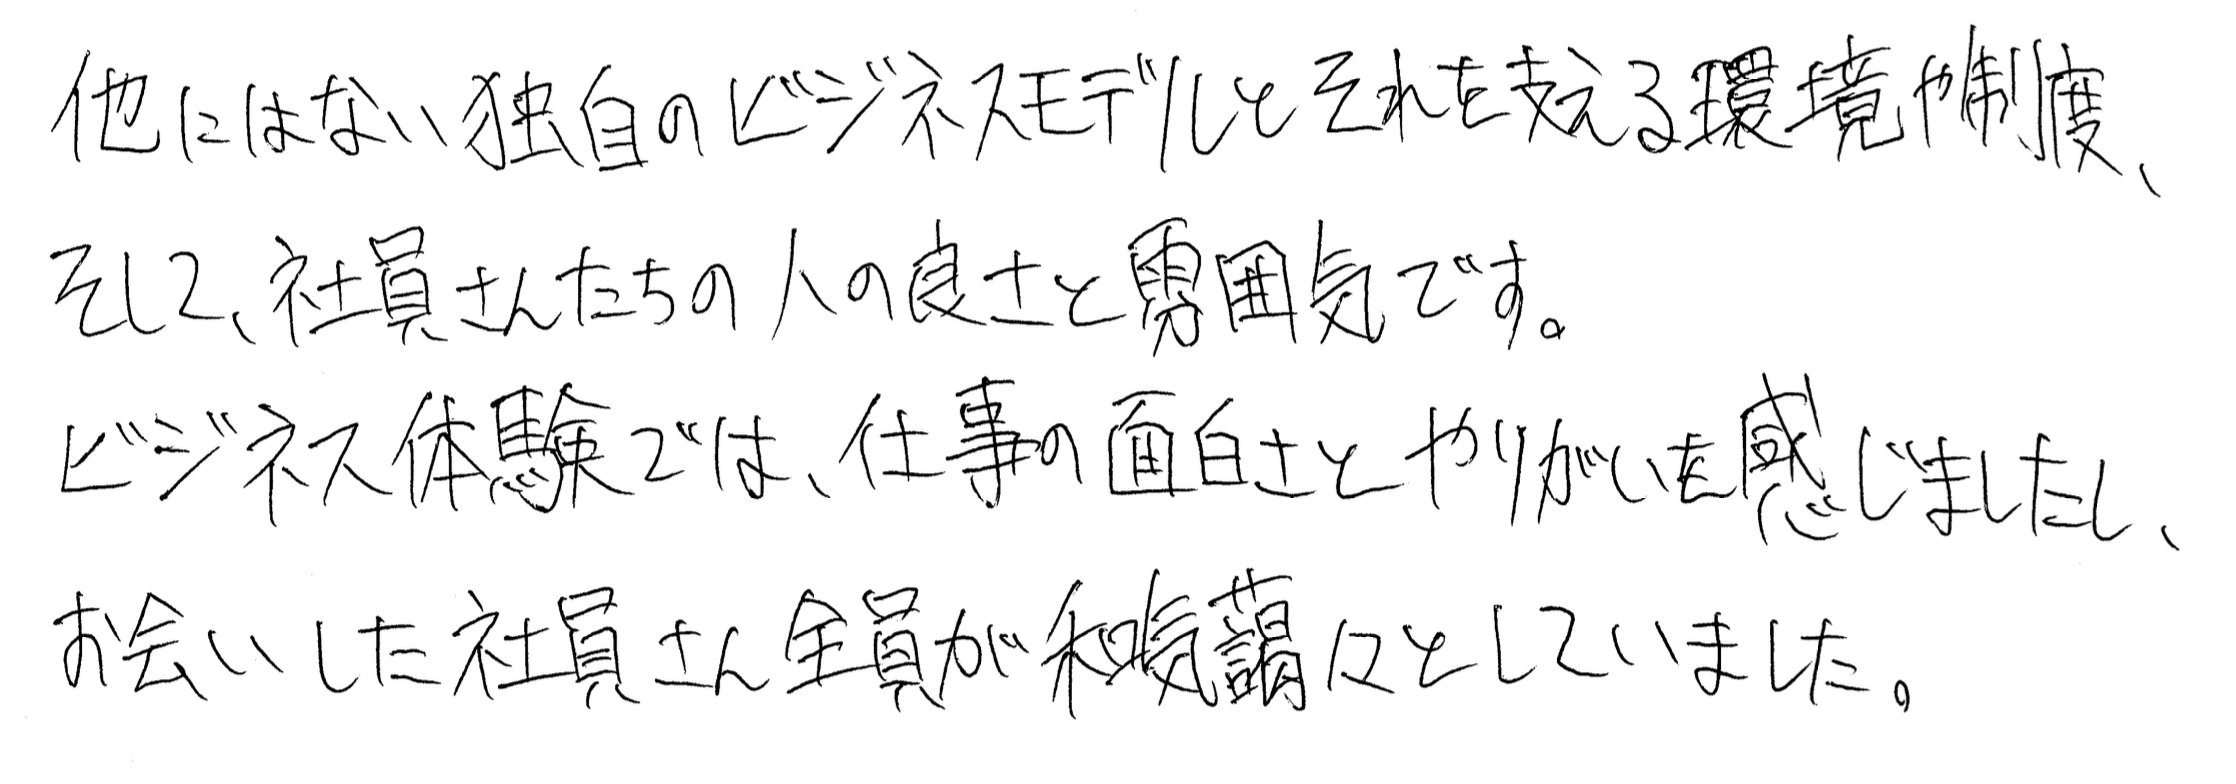 他にはない独自のビジネスモデルとそれを支える環境や制度、
そして、社員さんたちの人の良さと雰囲気です。
ビジネス体験では、仕事の面白さとやりがいを感じましたし、
お会いした社員さん全員が和気藹々としていました。